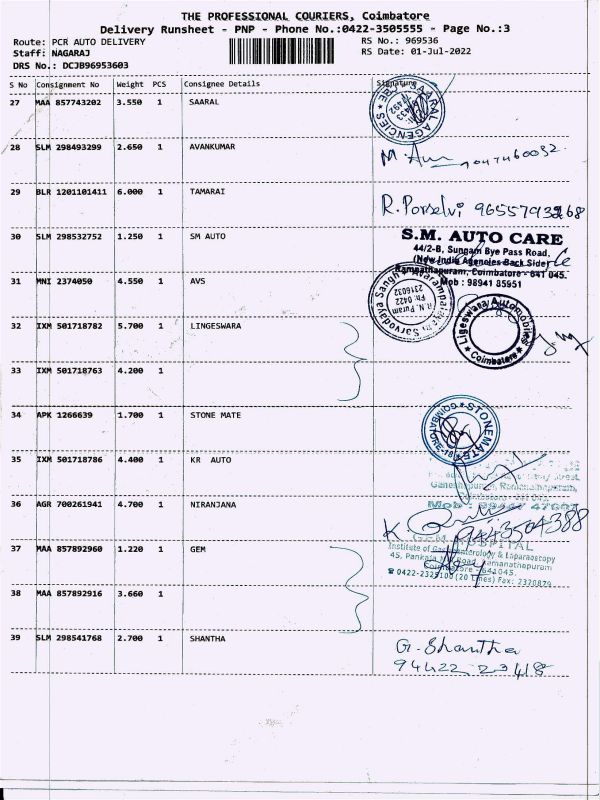 THE PROFESSIONAL COURIERS, Coimbatore
Delivery Runsheet - PNP - Phone No.:0422-3505555 - Page No.:3
Route: PCR AUTO DELIVERY
RS No.: 969536
Staff: NAGARAJ
RS Date: 01-Jul-2022
DRS No.: DCJB96953603
S No Consignment No Weight PCS Consignee Details Signature
27 MAA 857743202 3.550 1 SAARAL
SAARAL AGENCIES
28 SLM 298493299 2.650 1 AVANKUMAR
29 BLR 1201101411 6.000 1 TAMARAI
R. Porselvi
30 SLM 298532752 1.250 1 SM AUTO
S.M. AUTO CARE
44/2-B, Sungam Bye Pass Road,
(New India Agencies Back Side)
Ramanathapuram, Coimbatore - 641 045.
Mob : 98941 85951
31 MNI 2374050 4.550 1 AVS
Sarvodaya Sangh
R.N. Puram
Ph: 0422
2316032
32 IXM 501718782 5.700 1 LINGESWARA
Ligeswara Automobiles
Coimbatore
33 IXM 501718763 4.200 1
34 APK 1266639 1.700 1 STONE MATE
STONEMATE
COIMBATORE-18
35 IXM 501718786 4.400 1 KR AUTO
Ganeshapuram, Ramanathapuram,
36 AGR 700261941 4.700 1 NIRANJANA
9443504388
37 MAA 857892960 1.220 1 GEM
GEM HOSPITAL
Institute of Gastroenterology & Laparoscopy
45, Pankaja Mill Road, Ramanathapuram
Coimbatore - 641045.
☎ 0422-2325100 (20 Lines) Fax: 2320879
38 MAA 857892916 3.660 1
39 SLM 298541768 2.700 1 SHANTHA
G. Shantha
94422 23418